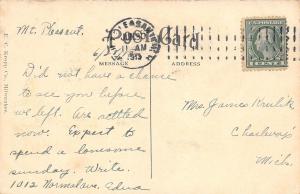 Mt. Pleasant.
Post Card
11 AM
1913
MESSAGE
ADDRESS
Did not have a chance
to see you before
we left. Are settled
now. Expect to
spend a lonesome
sunday. Write.
1012 Normal ave, Edna
Mrs. James
Charlevoix
Mich.
E. C. Kropp Co. Milwaukee